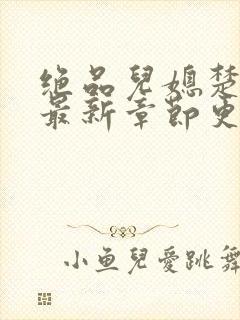 絶品兒媳楚
最新章節史
小鱼兒愛跳舞